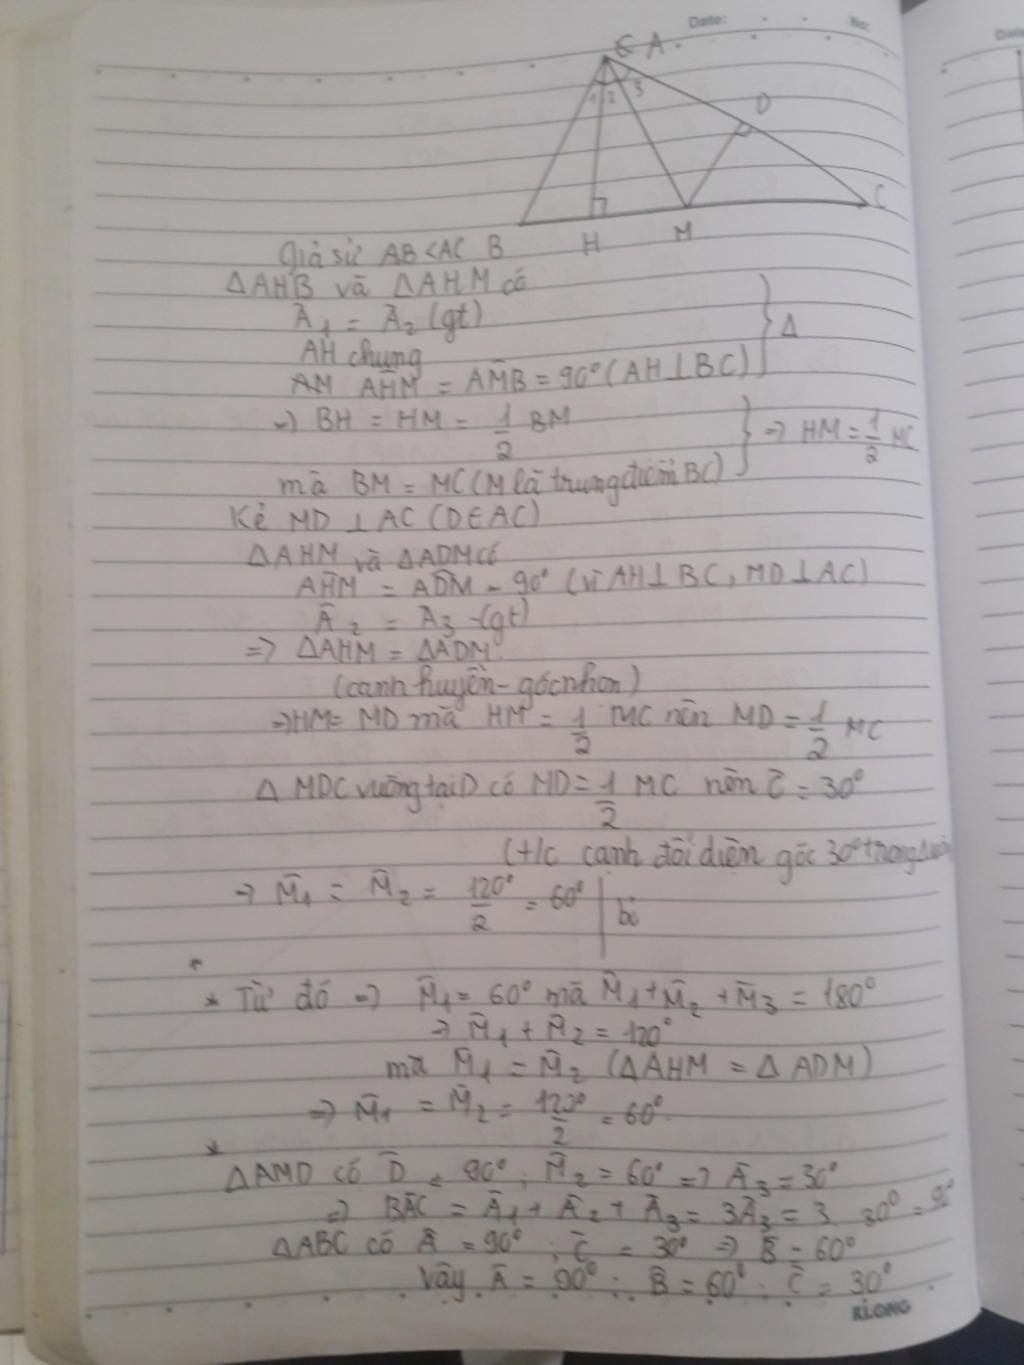 Date: No:
A
1 2 3
D
C
B H M
Giả sử AB < AC
ΔAHB và ΔAHM có
Â₁ = Â₂ (gt)
AH chung
AM AĤM = AM̂B = 90° (AH ⊥ BC) } Δ
→ BH = HM = 1/2 BM
mà BM = MC (M là trung điểm BC) } => HM = 1/2 MC
Kẻ MD ⊥ AC (D ∈ AC)
ΔAHM và ΔADM có
AĤM = AD̂M = 90° (vì AH ⊥ BC, MD ⊥ AC)
Â₂ = Â₃ (gt)
=> ΔAHM = ΔADM
(cạnh huyền - góc nhọn)
=> HM = MD mà HM = 1/2 MC nên MD = 1/2 MC
Δ MDC vuông tại D có MD = 1/2 MC nên Ĉ = 30°
(t/c cạnh đối diện góc 30° trong
=> M̂₁ = M̂₂ = 120°/2 = 60° | bỏ
* Từ đó => M̂₁ = 60° mà M̂₁ + M̂₂ + M̂₃ = 180°
=> M̂₁ + M̂₂ = 120°
mà M̂₁ = M̂₂ (ΔAHM = ΔADM)
=> M̂₁ = M̂₂ = 120°/2 = 60°
* ΔAMD có D̂ = 90°; M̂₂ = 60° => Â₃ = 30°
=> BÂC = Â₁ + Â₂ + Â₃ = 3Â₃ = 3. 30° = 90°
ΔABC có Â = 90°; Ĉ = 30° => B̂ = 60°
Vậy Â = 90°; B̂ = 60°; Ĉ = 30°
KLONG